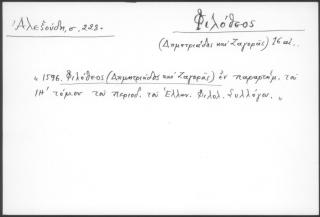 Ἀλεξούδη, σ. 228.
Φιλόθεος
(Δημητριάδος καί Ζαγορᾶς) 16 αἰ.
" 1596. Φιλόθεος (Δημητριάδος καί Ζαγορᾶς) ἐν παραρτήμ. τοῦ
ΙΗ' τόμου τοῦ περιοδ. τοῦ Ἑλλην. Φιλολ. Συλλόγου. "